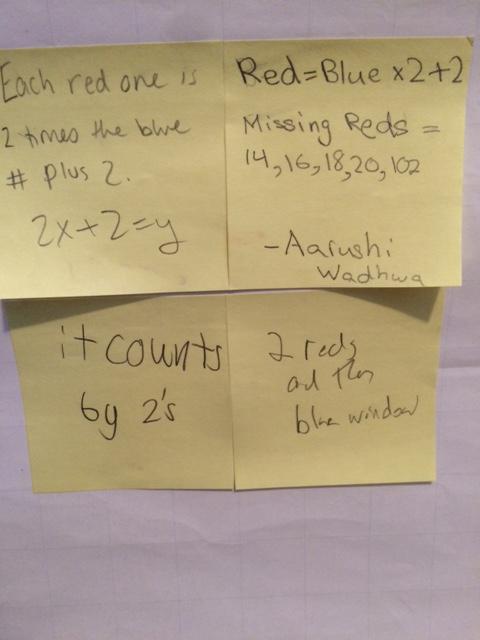 Each red one is
2 times the blue
# plus 2.
2x+2=y
Red=Blue x2+2
Missing Reds =
14,16,18,20,102
-Aarushi
Wadhwa
it counts
by 2's
2 reds
and then
blue window